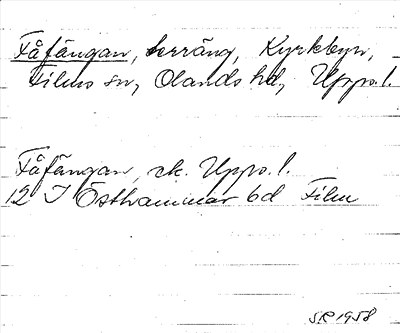 Fåfängan, terräng, Kyrkbyn,
Films sn, Olands hd, Upps. l.
Fåfängan, ek. Upps. l.
12 I Östhammar bd Film
SR 1958